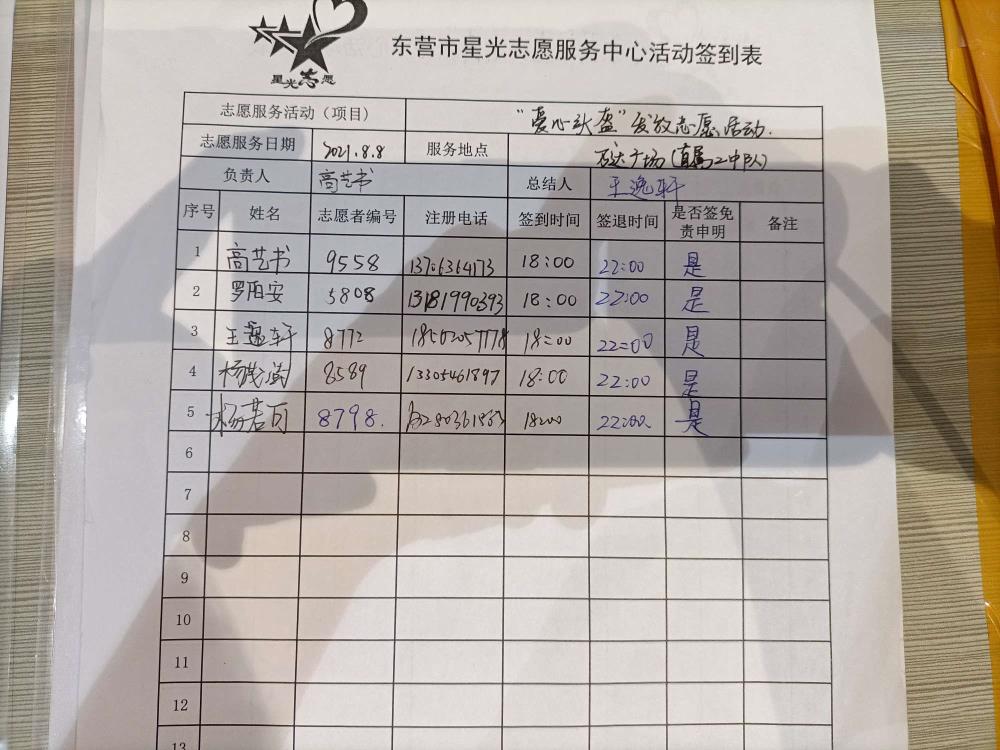 星光志愿
东营市星光志愿服务中心活动签到表
志愿服务活动（项目） “爱心头盔”发放志愿活动.
志愿服务日期 2021.8.8 服务地点 广场(直属二中队)
负责人 高艺书 总结人 王逸轩
序号 姓名 志愿者编号 注册电话 签到时间 签退时间 是否签免责申明 备注
1 高艺书 9558 13706364173 18:00 22:00 是
2 罗伯安 5808 13181990393 18:00 22:00 是
3 王逸轩 8772 18:00 22:00 是
4 杨 8589 13305461897 18:00 22:00 是
5 杨若 8798. 18:00 22:00. 是
6
7
8
9
10
11
12
13